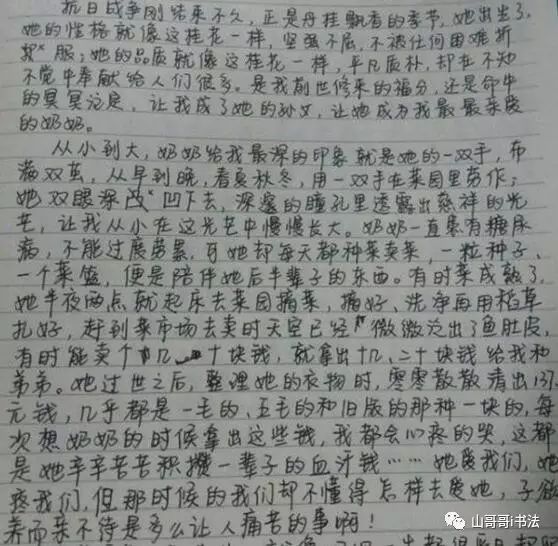 抗日战争刚结束不久,正是丹桂飘香的季节,她出生了,
她的性格就像这桂花一样,坚强不屈,不被任何困难折
服;她的品质就像这桂花一样,平凡质朴,却在不知
不觉中奉献给人们很多。是我前世修来的福分,还是命中
的冥冥注定,让我成了她的孙女,让她成为我最最亲爱
的奶奶。
从小到大,奶奶给我最深的印象就是她的一双手,布
满双茧,从早到晚,春夏秋冬,用一双手在菜园里劳作;
她双眼深凹下去,深邃的瞳孔里透露出慈祥的光
芒,让我从小在这光芒中慢慢长大。奶奶一直患有糖尿
病,不能过度劳累,可她却每天都种菜卖菜,一粒种子、
一个菜篮,便是陪伴她后半辈子的东西。有时菜成熟了,
她半夜两点就起床去菜园摘菜,摘好、洗净再用稻草
扎好,赶到菜市场去卖时天空已经微微泛出了鱼肚皮,
有时能卖个几十块钱,就拿出十几、二十块钱给我和
弟弟。她过世之后,整理她的衣物时,零零散散清出137
元钱,几乎都是一毛的、五毛的和旧版的那种一块的,每
次想奶奶的时候拿出这些钱,我都会心疼的哭,这都
是她辛辛苦苦积攒一辈子的血汗钱……她爱我们,她
疼我们,但那时候的我们却不懂得怎样去爱她,子欲
养而亲不待是多么让人痛苦的事啊!
山哥哥i书法